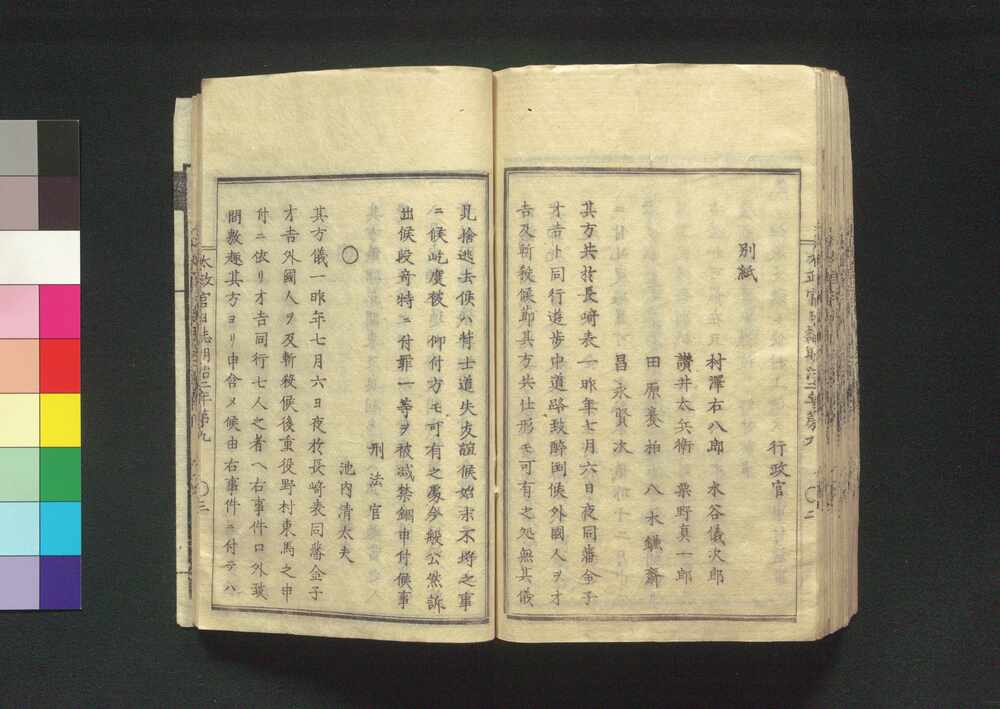 行政官
別紙
村澤右八郎　水谷儀次郎
讃井太兵衛　粟野真一郎
田原養拍　八木鎌斎
昌永賢次
其方共於長﨑表一昨年七月六日夜同藩金子
才吉ト同行道歩中道路致醉臥候外國人ヲ才
吉及斬殺候節其方共仕形モ可有之処無其儀
見捨迯去候ハ付士道失友誼候始末不埒之事
ニ候屹度被 仰付方モ可有之處今般公然訴
出候段竒特ニ付罪一等ヲ被减禁錮申付候事
刑法官
〇
池内清太夫
其方儀一昨年七月六日夜於長﨑表同藩金子
才吉外國人ヲ及斬殺候後重役野村東馬之申
付ニ依リ才吉同行七人之者ヘ右事件口外致
間敷趣其方ヨリ申含メ候由右事件ニ付テハ
太政官日誌明治二年第九
〇三